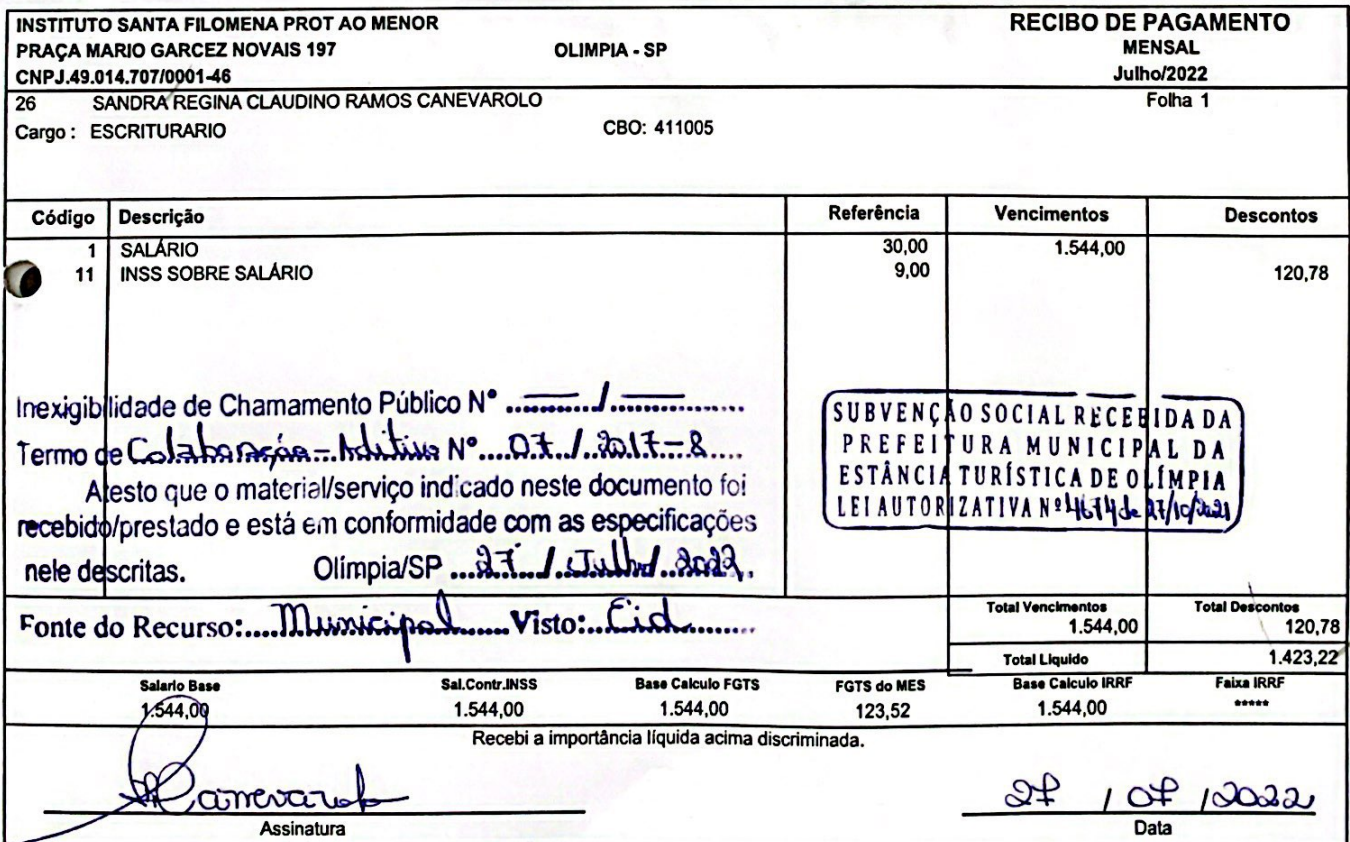 INSTITUTO SANTA FILOMENA PROT AO MENOR RECIBO DE PAGAMENTO
PRAÇA MARIO GARCEZ NOVAIS 197 OLIMPIA - SP MENSAL
CNPJ.49.014.707/0001-46 Julho/2022
26 SANDRA REGINA CLAUDINO RAMOS CANEVAROLO Folha 1
Cargo : ESCRITURARIO CBO: 411005
Código Descrição Referência Vencimentos Descontos
1 SALÁRIO 30,00 1.544,00
11 INSS SOBRE SALÁRIO 9,00 120,78
Inexigibilidade de Chamamento Público N° ...... / ......
Termo de Colaboração - Aditivo N° 07 / 2017 - 8
Atesto que o material/serviço indicado neste documento foi
recebido/prestado e está em conformidade com as especificações
nele descritas. Olímpia/SP 27 / Julho / 2022.
SUBVENÇÃO SOCIAL RECEBIDA DA
PREFEITURA MUNICIPAL DA
ESTÂNCIA TURÍSTICA DE OLÍMPIA
LEI AUTORIZATIVA Nº 4674 de 27/10/2021
Fonte do Recurso: Municipal Visto: Eid
Total Vencimentos Total Descontos
1.544,00 120,78
Total Liquido 1.423,22
Salario Base Sal.Contr.INSS Base Calculo FGTS FGTS do MES Base Calculo IRRF Faixa IRRF
1.544,00 1.544,00 1.544,00 123,52 1.544,00 *****
Recebi a importância líquida acima discriminada.
Canevarolo 27 / 07 / 2022
Assinatura Data